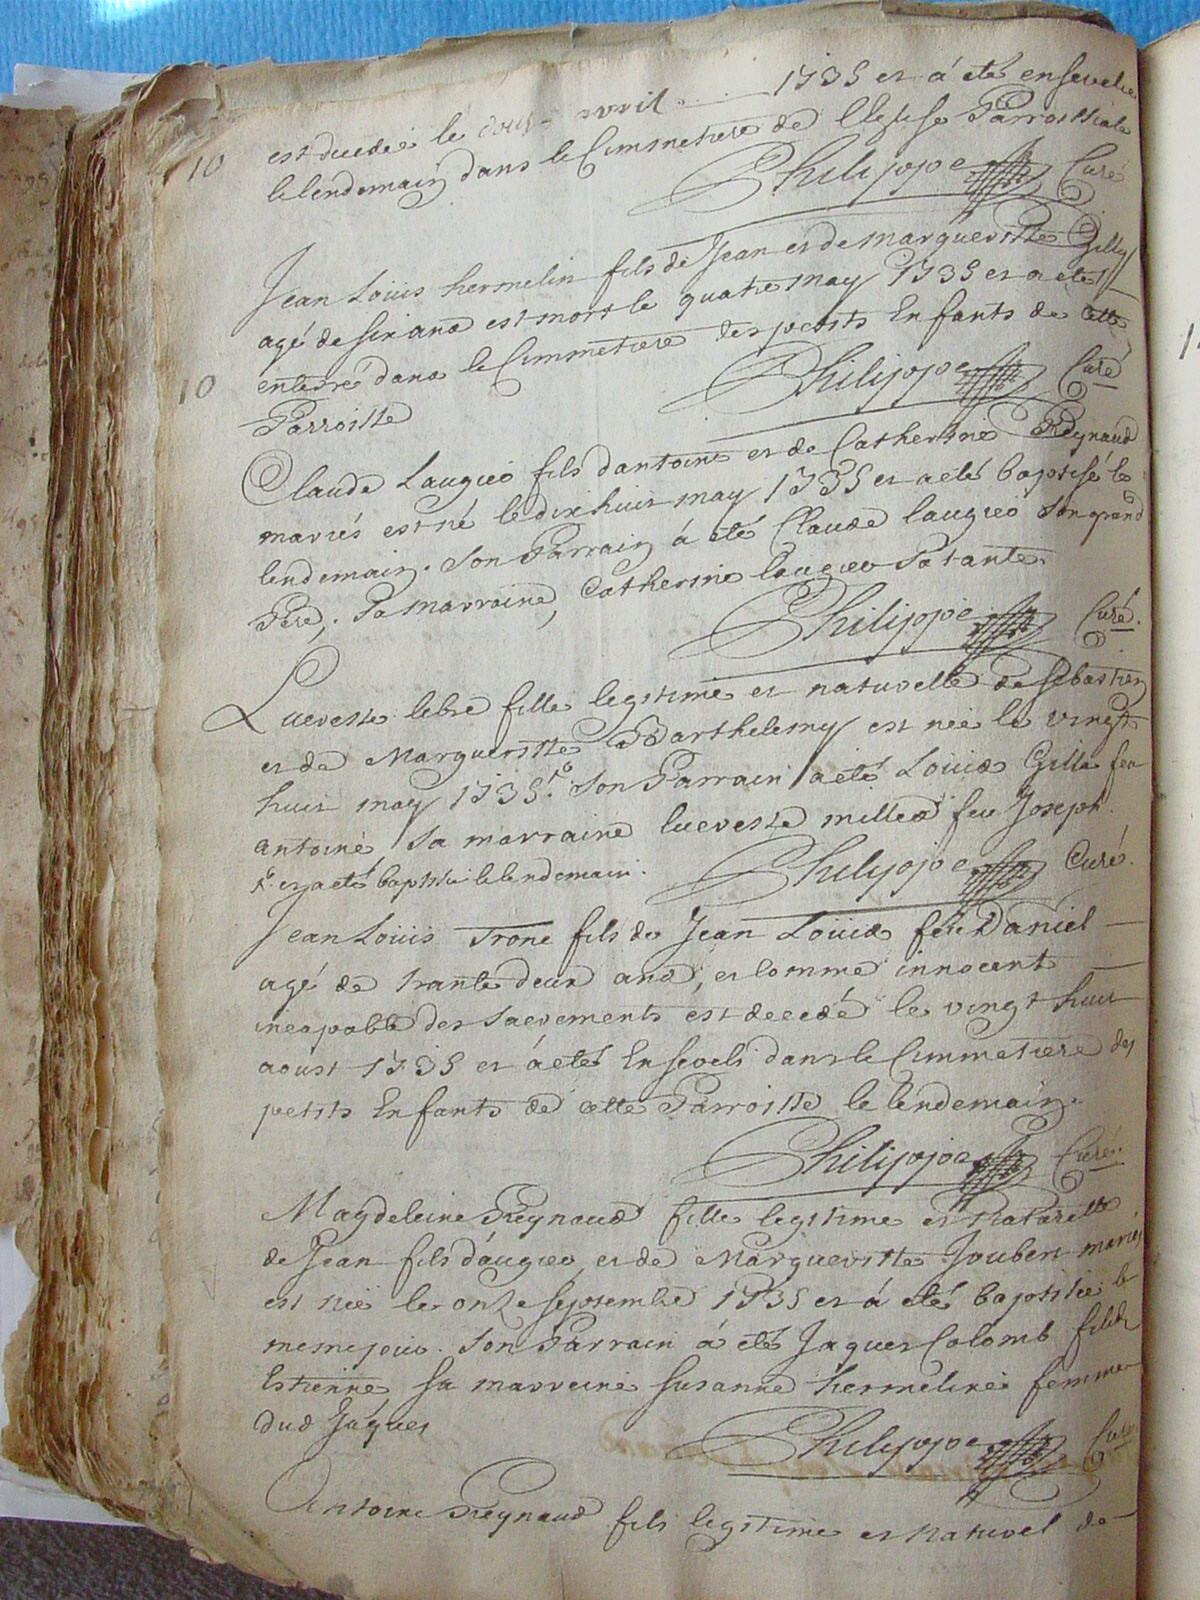 est decedeé le douze avril 1735 et á eté ensevelie
10
le lendemain dans le Cimmetiere de l'Eglise Parroissiale
Philippe Curé
Jean Louis hermelin fils de Jean et de margueritte Gilly
agé de six ans est mort le quatre may 1735 et a eté
enterré dans le Cimmetiere des petits Enfants de cette
10
Parroisse
Philippe Curé
Claude Laugier fils dantoine et de Catherine Reynaud
mariés est né le dixhuit may 1735 et a eté baptisé le
lendemain. Son Parrain á eté Claude laugier son grand
Pere, Sa marraine, Catherine laugier Sa tante.
Philippe Curé.
Lucresse lebre fille legitime et naturelle de sebastien
et de Margueritte Barthelemy est neé le vingt
huit may 1735. Son Parrain a eté Louis Gille feu
antoine, Sa marraine lucresse feu Joseph.
et a eté baptisée le lendemain.
Philippe Curé.
Jean Louis Trone fils de Jean Louis feu Daniel
agé de trante deux ans, et comme innocent
incapable des Sacrements est decedé le vingt huit
aoust 1735 et á eté Enseveli dans le Cimmetiere des
petits Enfants de cette Parroisse le lendemain.
Philippe Curé.
Magdeleine Reynaud fille legitime et Naturelle
de Jean fils daugier et de Margueritte Joubert mariés
est neé le onze septembre 1735 et á eté baptiseé le
meme jour. Son Parrain á eté Jaques Colomb fils d
Estienne Sa marreine Susanne hermeline femme
dud Jaques
Philippe Curé
Antoine Reynaud fils legitime et Naturel de